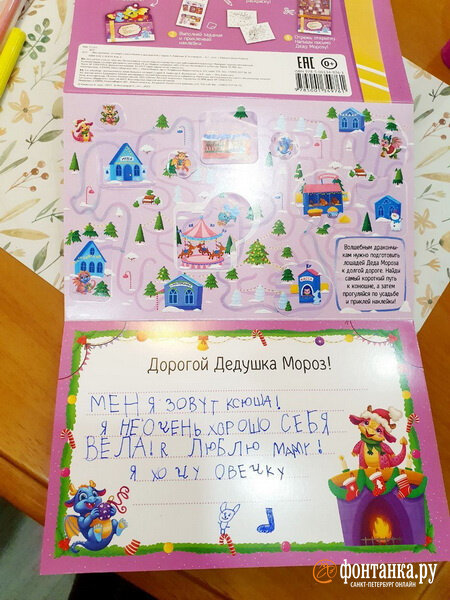 раскраску!
Выполни задания
и приклеивай
наклейки
Отрежь открытку
Напиши письмо
Деду Морозу!
EAC 0+
Волшебным дракончи-
кам нужно подготовить
лошадей Деда Мороза
к долгой дороге. Найди
самый короткий путь
к конюшне, а затем
прогуляйся по усадьбе
и приклей наклейки!
Дорогой Дедушка Мороз!
МЕНЯ ЗОВУТ КСЮША!
Я НЕ ОЧЕНЬ ХОРОШО СЕБЯ
ВЕЛАЯ ЛЮБЛЮ МАМУ!
Я ХОЧУ ОВЕЧКУ
фонтанка.ру
САНКТ-ПЕТЕРБУРГ ОНЛАЙН